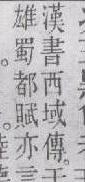 漢書西域傳。
雄蜀都賦亦言